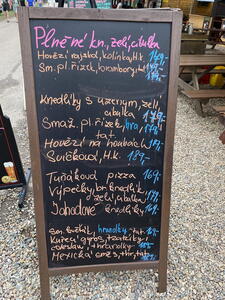 Plněné kn., zelí, cibulka
Hovězí rajská, kolínka, H.k. 149,-
Sm. pl. řízek, brambory, tat.
Knedlíky s uzeným, zelí,
cibulka 179,-
Smaž. pl. řízek, hra, 179,-
tat.
Hovězí na houbách
Svíčková, H.k. 189,-
Tuňáková pizza 169,-
Výpečky, br. knedlík,
zelí, cibulka, 169,-
Jahodové knedlíky, 169,-
Sm. květák, hranolky, tat. 169,-
Kuřecí gyros, tzatziky,
+ hranolky
Mexická směs, + hr., tat.